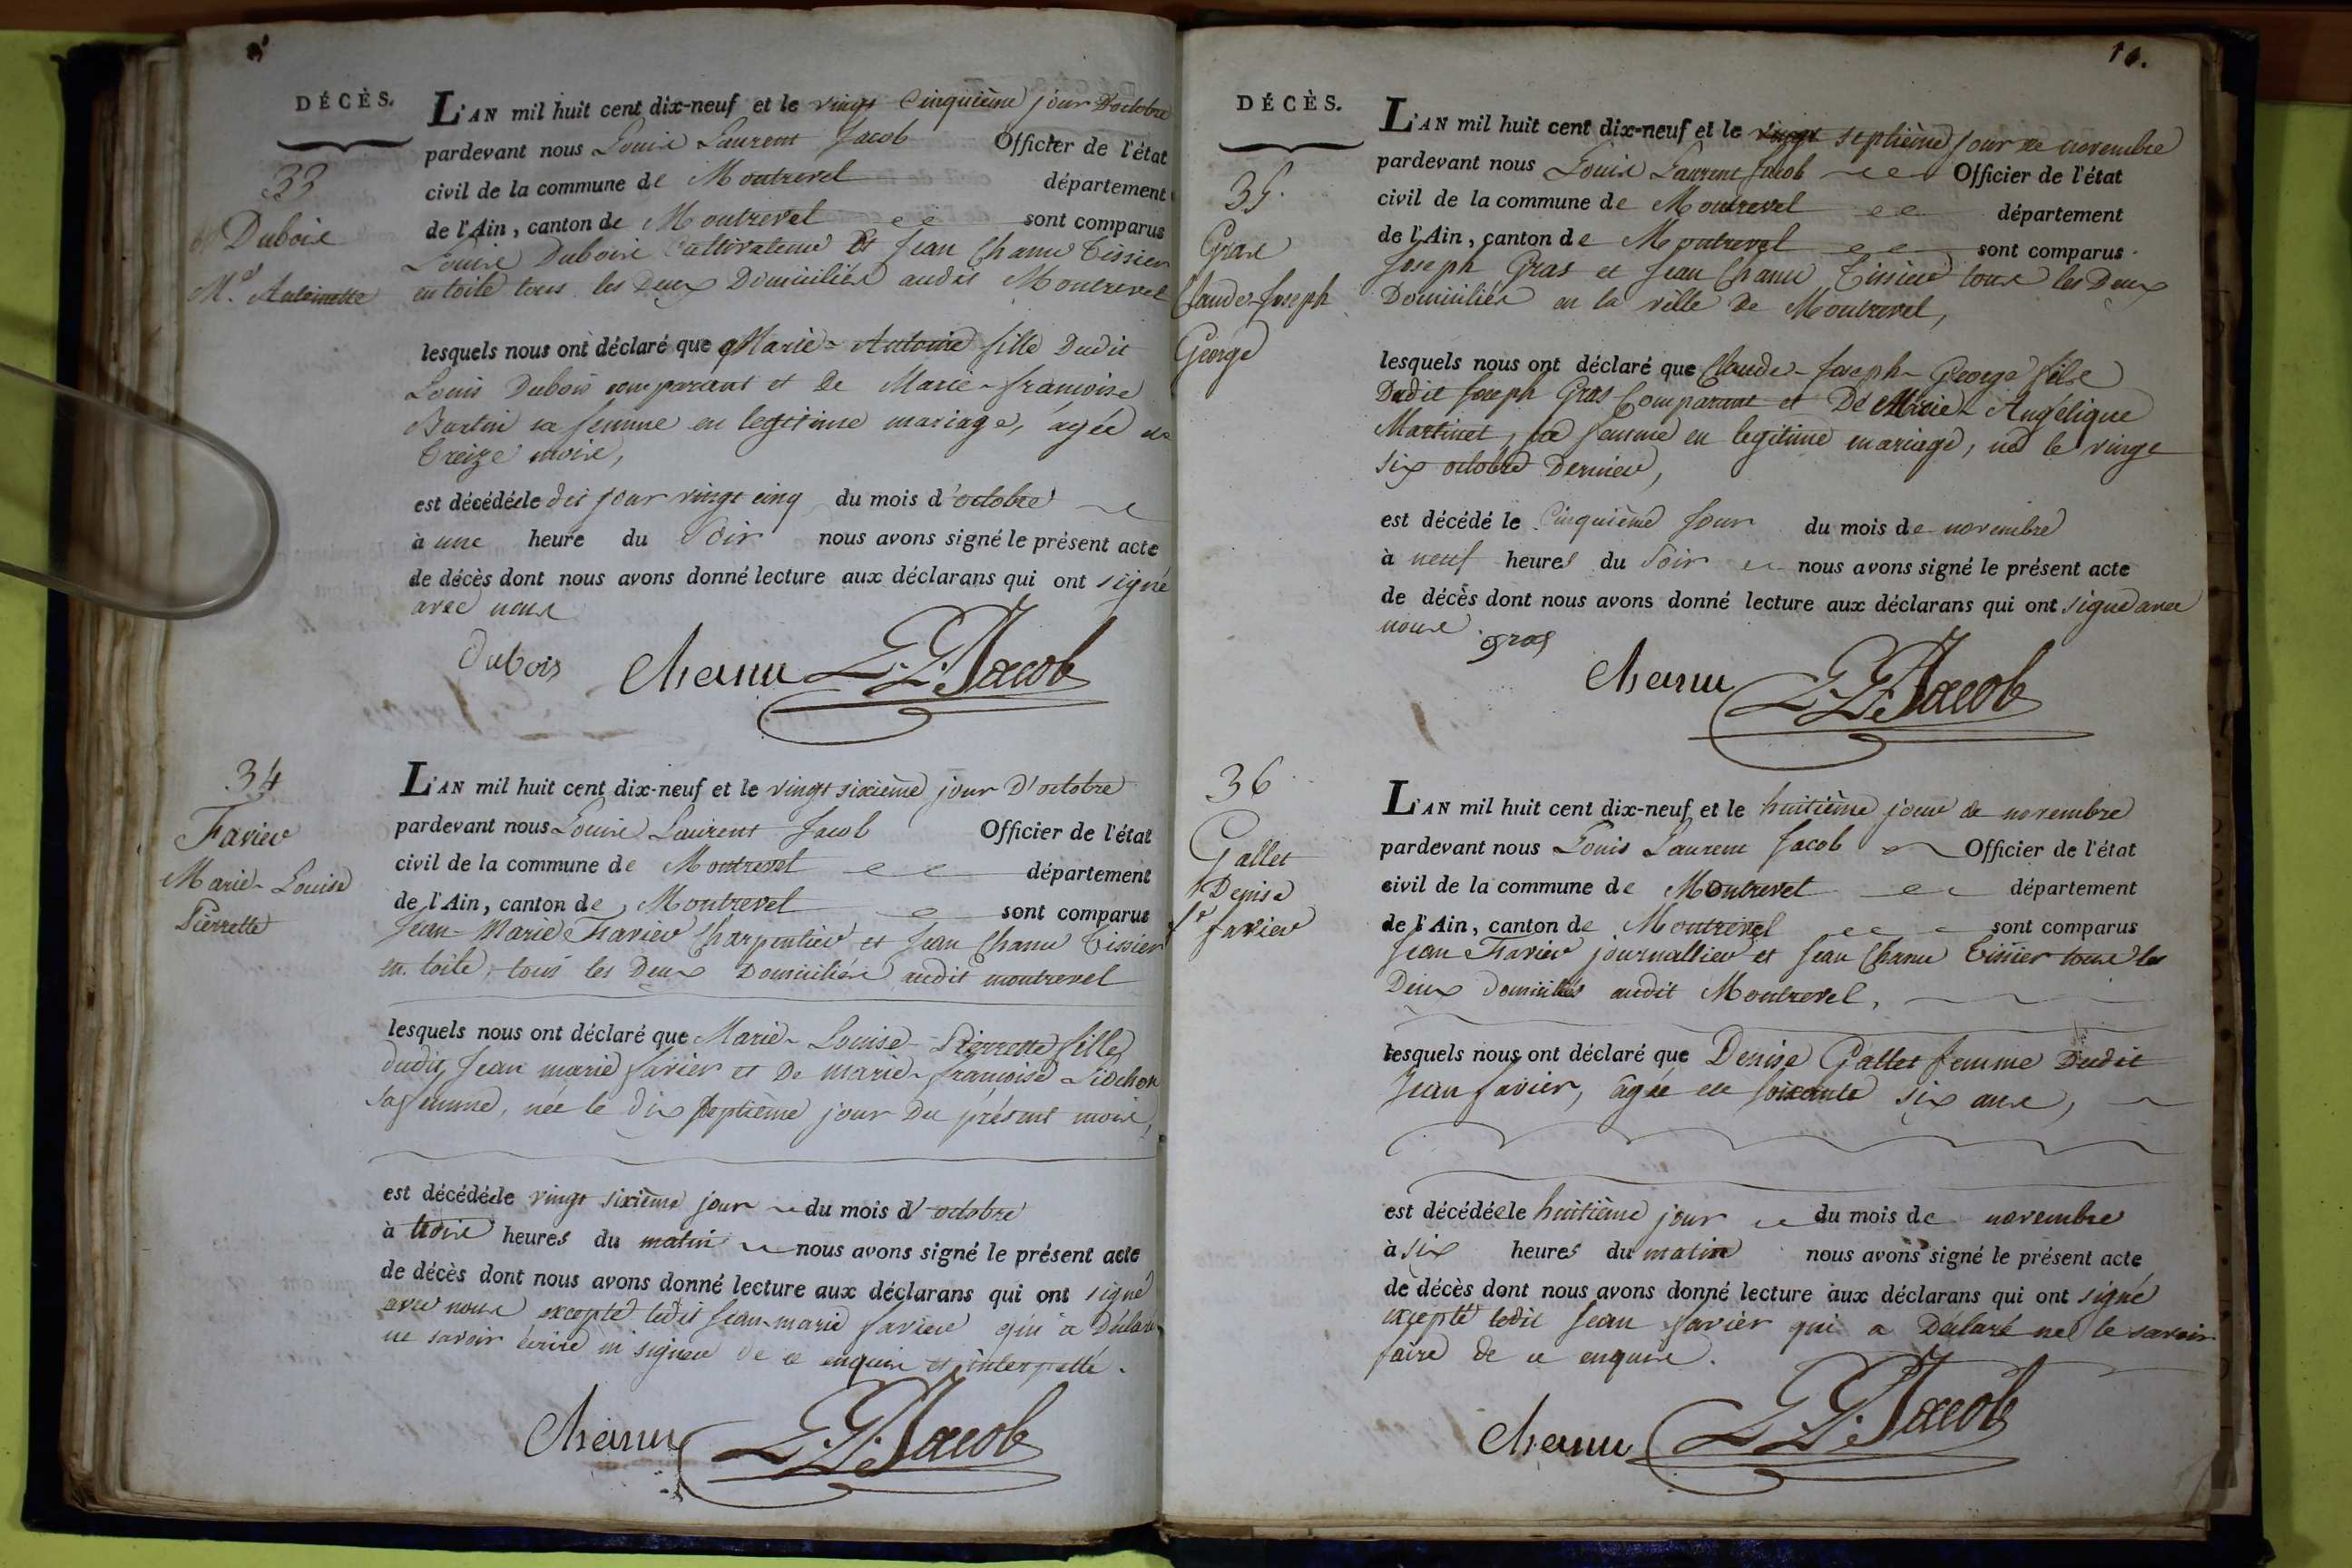 DÉCÈS.
33
Dubois
M.ie Antoinette
L'AN mil huit cent dix-neuf et le vingt Cinquième jour D'octobre
pardevant nous Louis Laurent Jacob Officier de l'état
civil de la commune de Montrevel département
de l'Ain, canton de Montrevel sont comparus
Louis Dubois Cultivateur Et Jean Chanu Tissier
en toile tous les Deux Domiciliés audit Montrevel
lesquels nous ont déclaré que Marie-Antoine fille Dudit
Louis Dubois comparant et de Marie-françoise
sa femme en legitime mariage, âgée de
treize mois,
est décédée le dit jour vingt cinq du mois d'octobre
à une heure du Soir nous avons signé le présent acte
de décès dont nous avons donné lecture aux déclarans qui ont signé
avec nous
Dubois Chanu L. L. Jacob
34
Favier
Marie-Louise
Pierrette
L'AN mil huit cent dix-neuf et le vingt sixième jour D'octobre
pardevant nous Louis Laurent Jacob Officier de l'état
civil de la commune de Montrevel département
de l'Ain, canton de Montrevel sont comparus
Jean-Marie Favier Charpentier et Jean Chanu Tissier
en toile, tous les Deux Domiciliés audit montrevel
lesquels nous ont déclaré que Marie-Louise-Pierrette fille
dudit Jean marie favier et De marie-françoise Siochon
sa femme, née le dix septième jour du présent mois,
est décédée le vingt sixième jour du mois d'octobre
à trois heures du matin nous avons signé le présent acte
de décès dont nous avons donné lecture aux déclarans qui ont signé
avec nous excepté ledit Jean-marie favier qui a Déclaré
ne savoir écrire ni signer de ce enquis et interpellé.
Chanu L. L. Jacob
DÉCÈS.
35.
Gras
Claude-Joseph
George
L'AN mil huit cent dix-neuf et le vingt septième jour de novembre
pardevant nous Louis Laurent Jacob Officier de l'état
civil de la commune de Montrevel département
de l'Ain, canton de Montrevel sont comparus
Joseph Gras et Jean Chanu Tissier tous les Deux
Domiciliés en la ville de Montrevel,
lesquels nous ont déclaré que Claude-Joseph-George fils
Dudit Joseph Gras Comparant et De Marie Angélique
Martinet, sa femme en legitime mariage, né le vingt
six octobre Dernier,
est décédé le Cinquième Jour du mois de novembre
à neuf heures du Soir nous avons signé le présent acte
de décès dont nous avons donné lecture aux déclarans qui ont signé avec
nous
gras
Chanu L. L. Jacob
36
Gallet
Denise
fe favier
L'AN mil huit cent dix-neuf et le huitième jour de novembre
pardevant nous Louis Laurent Jacob Officier de l'état
civil de la commune de Montrevel département
de l'Ain, canton de Montrevel sont comparus
Jean Favier journallier et Jean Chanu Tissier tous les
Deux domiciliés audit Montrevel,
lesquels nous ont déclaré que Denise Gallet femme Dudit
Jean favier, âgée de soixante six ans,
est décédée le huitième jour du mois de novembre
à six heures du matin nous avons signé le présent acte
de décès dont nous avons donné lecture aux déclarans qui ont signé
excepté ledit Jean favier qui a Déclaré ne le savoir
faire de ce enquis.
Chanu L. L. Jacob